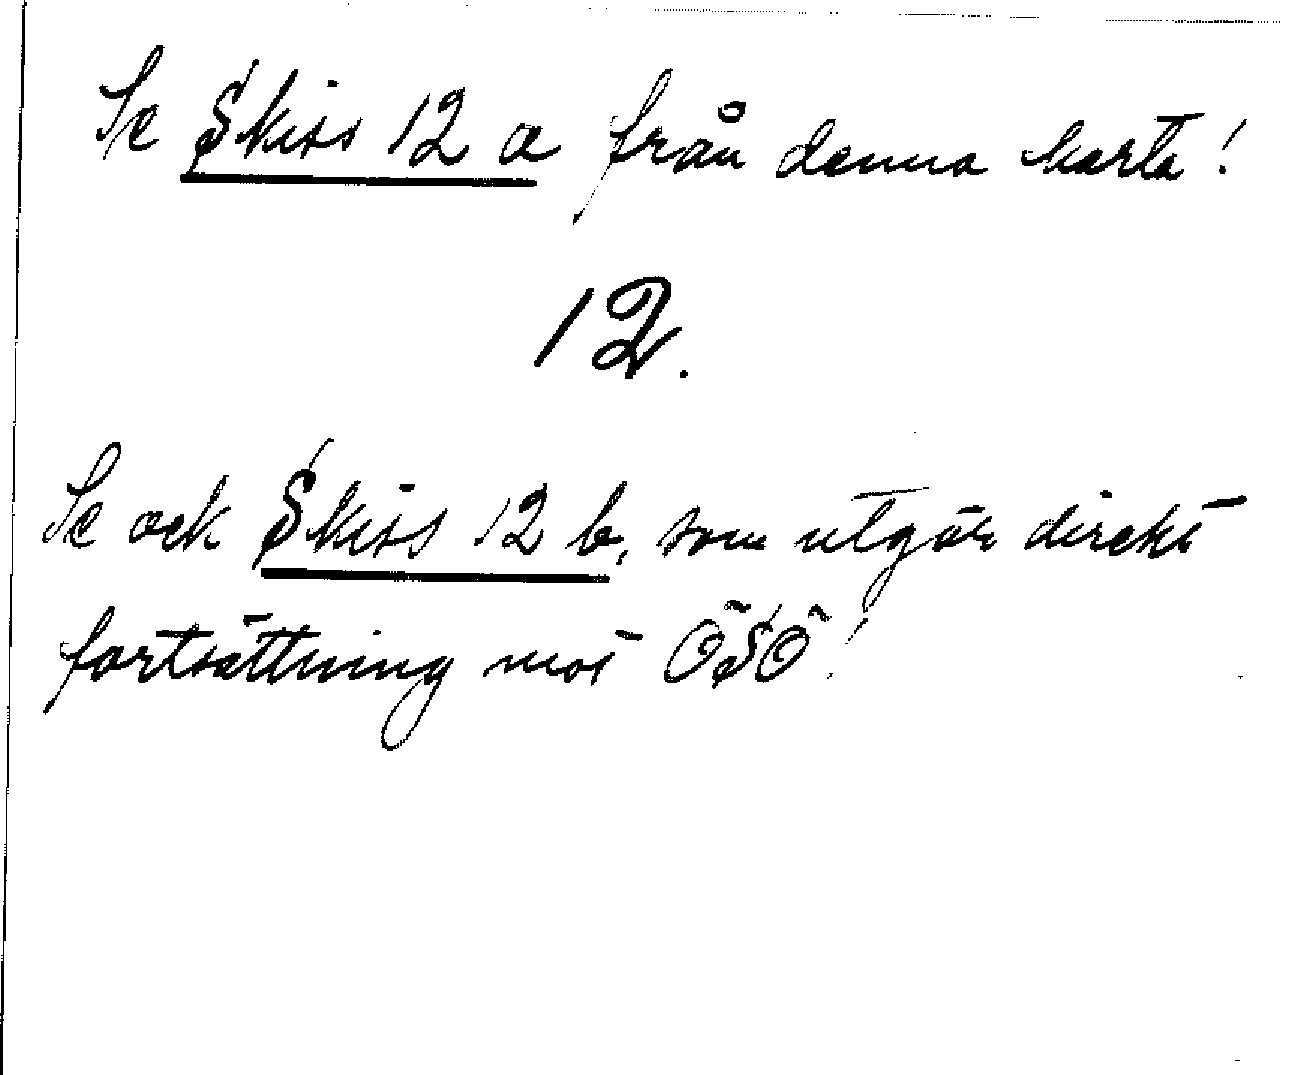 Se Skiss 12 a från denna karta!
12.
Se ock Skiss 12 b, som utgör direkt
fortsättning mot ÖSÖ!